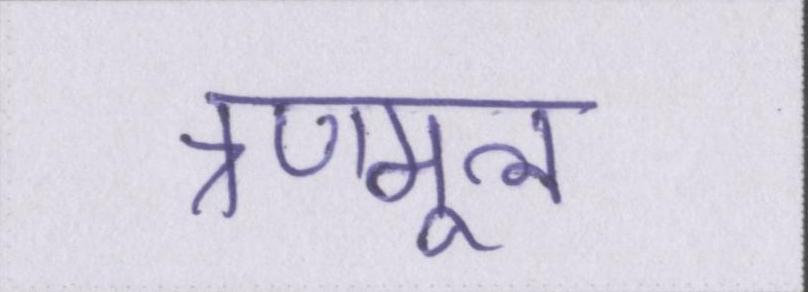 त्रणमूल